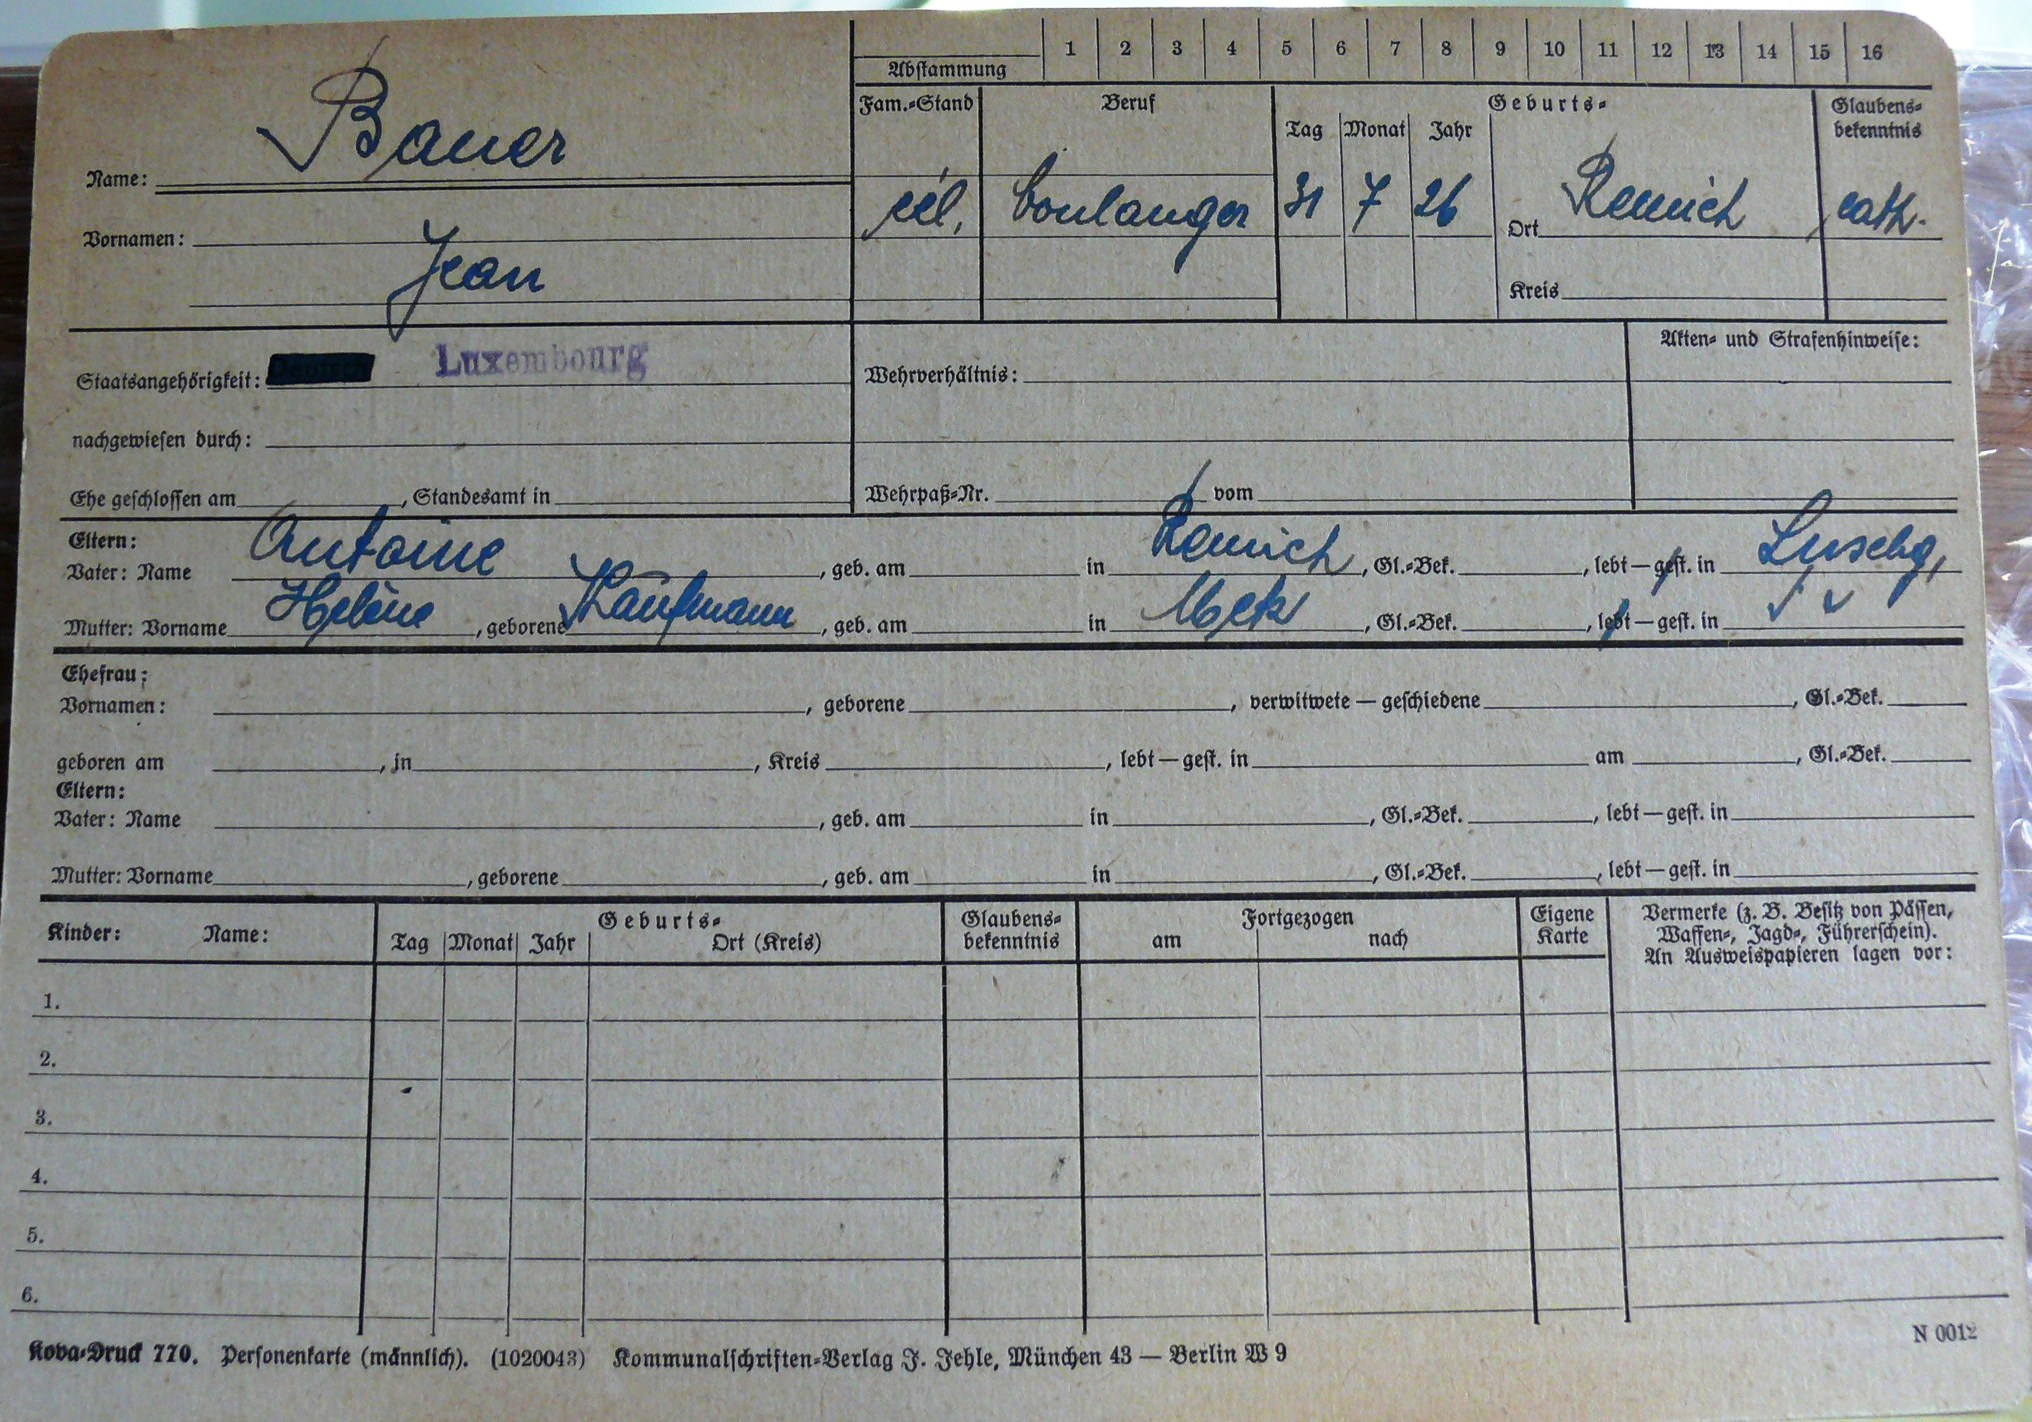 1 2 3 4 5 6 7 8 9 10 11 12 13 14 15 16
Abstammung
Name: Bauer
Fam.-Stand Beruf Geburts- Glaubens-
Tag Monat Jahr bekenntnis
cél. boulanger 31 7 26 Ort Remich cath.
Vornamen: Jean
Kreis
Staatsangehörigkeit: Luxembourg
Wehrverhältnis:
Akten- und Strafenhinweise:
nachgewiesen durch:
Ehe geschlossen am , Standesamt in
Wehrpaß-Nr. vom
Eltern:
Vater: Name Antoine , geb. am in Remich , Gl.-Bek. , lebt—gest. in Luxbg,
Mutter: Vorname Helène , geborene Kaufmann , geb. am in , Gl.-Bek. , lebt—gest. in
Ehefrau:
Vornamen: , geborene , verwitwete — geschiedene , Gl.-Bek.
geboren am , in , Kreis , lebt—gest. in am , Gl.-Bek.
Eltern:
Vater: Name , geb. am in , Gl.-Bek. , lebt—gest. in
Mutter: Vorname , geborene , geb. am in , Gl.-Bek. , lebt—gest. in
Kinder: Name: Geburts- Glaubens- Fortgezogen Eigene Vermerke (z. B. Besitz von Pässen,
Tag Monat Jahr Ort (Kreis) bekenntnis am nach Karte Waffen-, Jagd-, Führerschein).
An Ausweispapieren lagen vor:
1.
2.
3.
4.
5.
6.
Kova-Druck 770. Personenkarte (männlich). (1020043) Kommunalschriften-Verlag J. Jehle, München 43 — Berlin W 9
N 0012